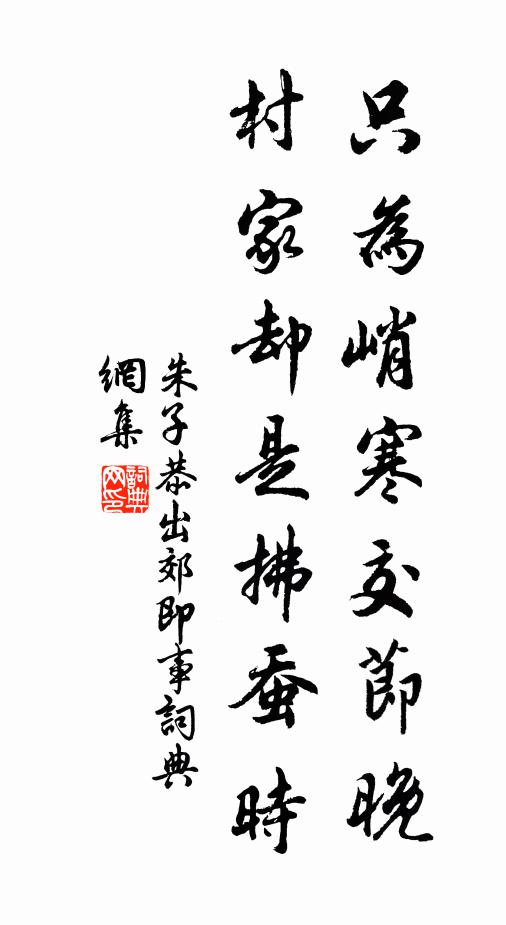 只為峭寒交節晚
村家却是拂蚕時
朱子恭出郊即事詞典
網集
詞典網印